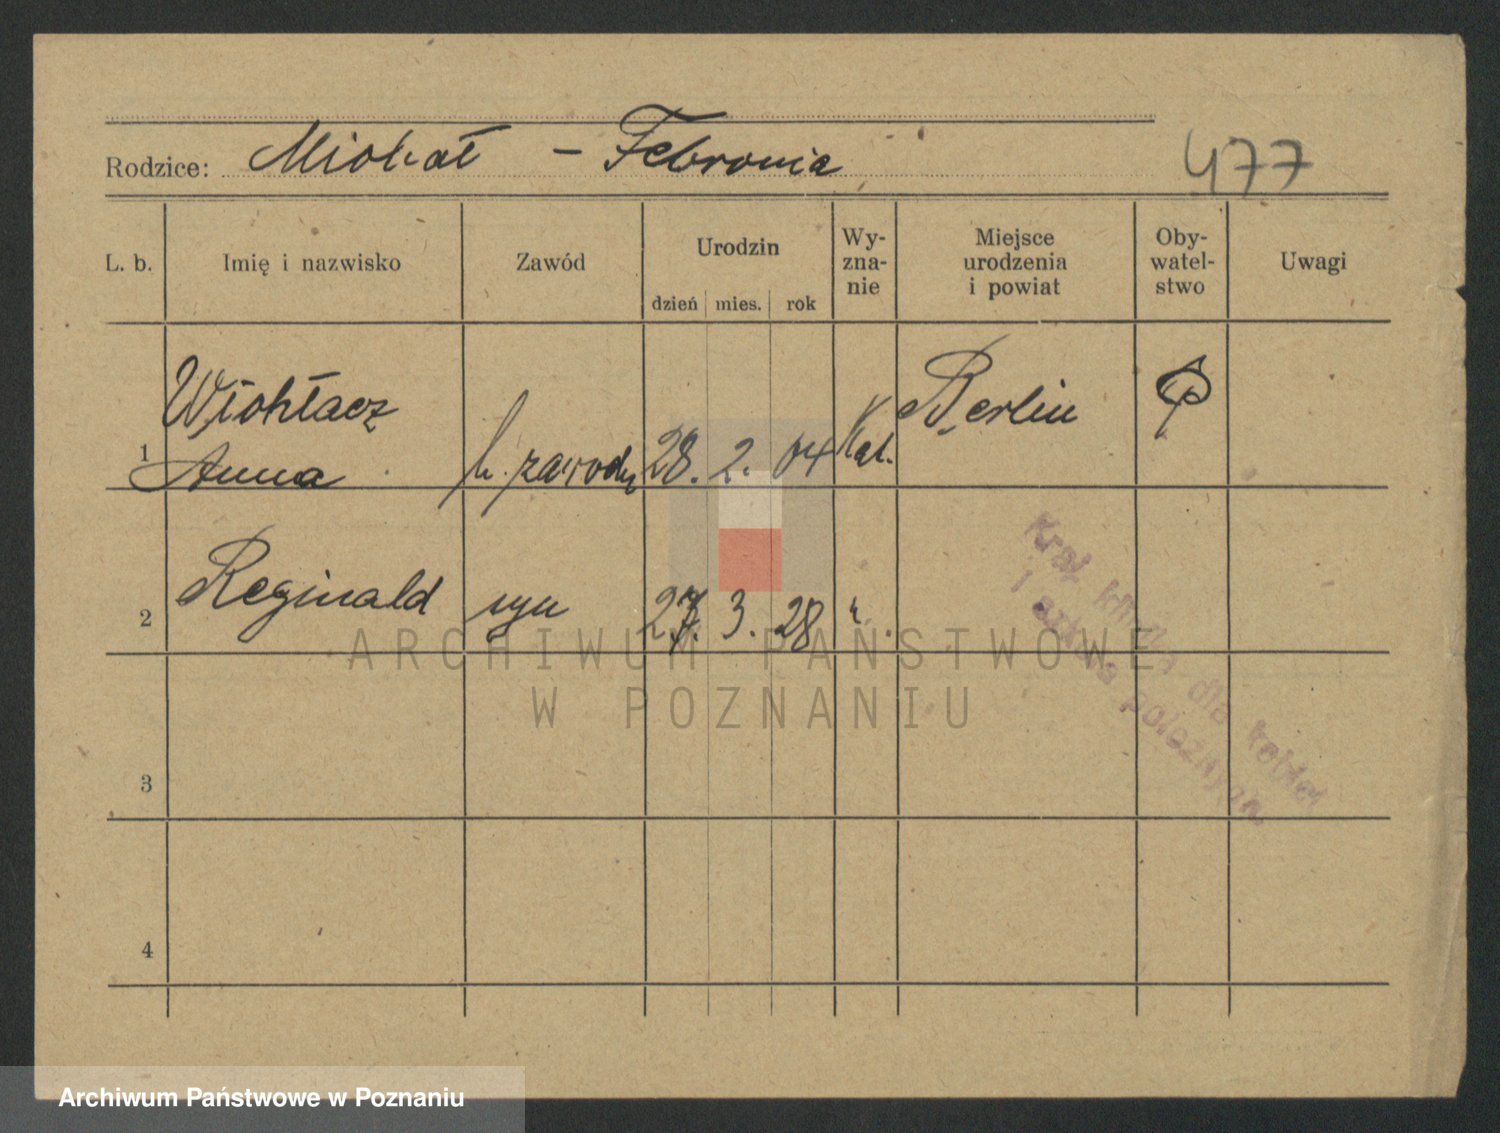 Rodzice: Michał - Febronia
477
L. b. Imię i nazwisko Zawód Urodzin dzień mies. rok Wy-zna-nie Miejsce urodzenia i powiat Oby-watel-stwo Uwagi
Berlin
1 Anna b. zawodu 28. 2. 04 Kat. P
2 Reginald syn 27. 3. 28 "
Kraj. klinika dla kobiet
i szkoła położnych
3
4
ARCHIWUM PAŃSTWOWE
W POZNANIU
Archiwum Państwowe w Poznaniu